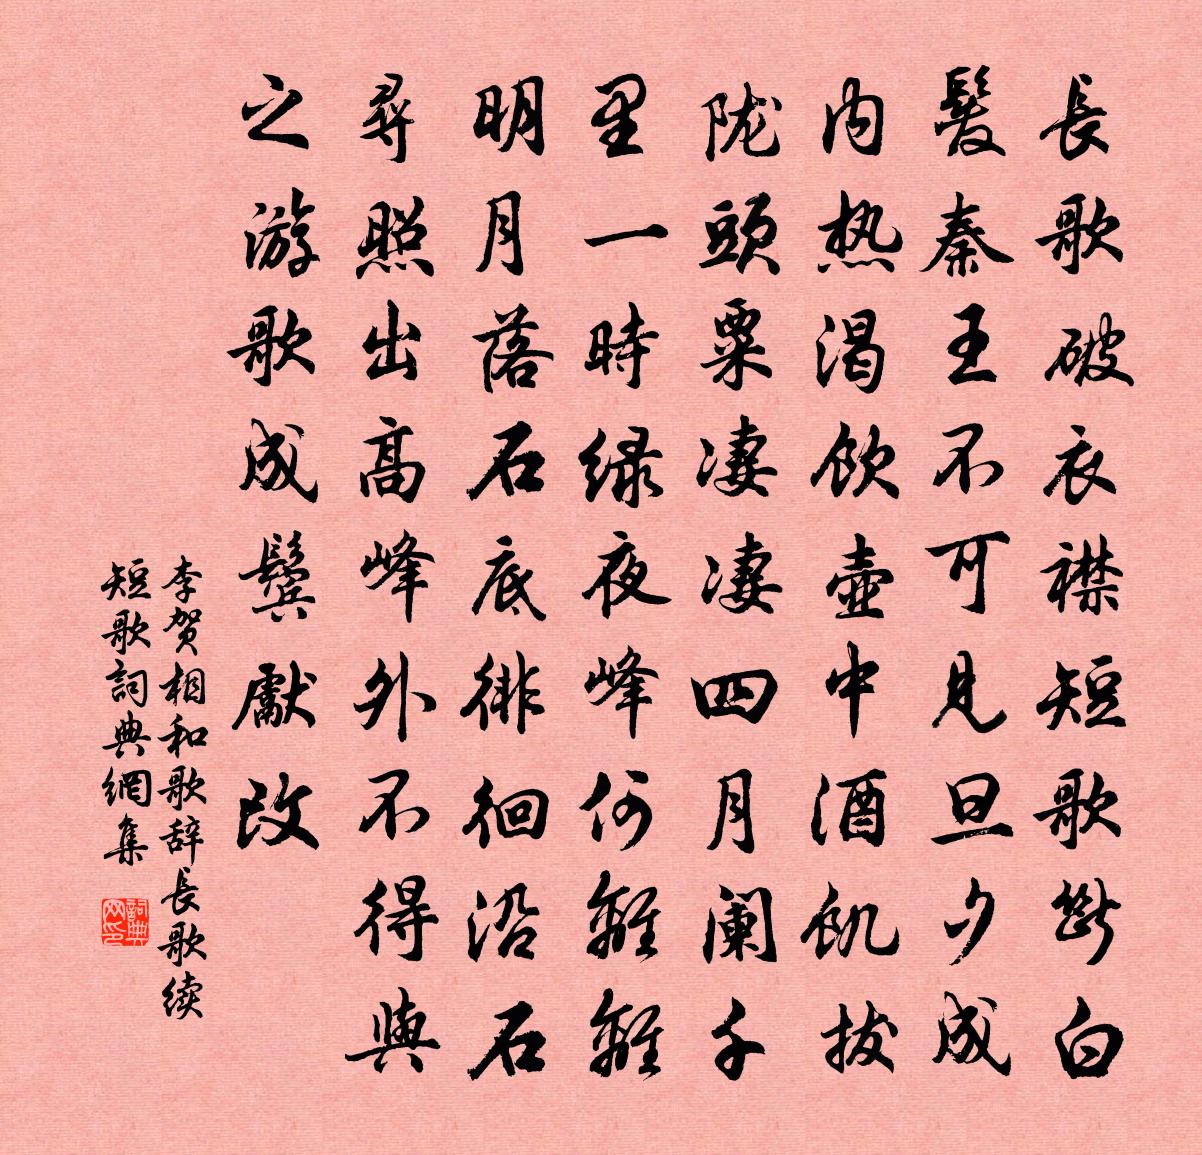 長歌破衣襟短歌斷白
髮秦王不可見旦夕成
内热渴飲壺中酒飢拔
陇頭粟凄凄四月阑千
里一時绿夜峰何離離
明月落石底徘徊沿石
尋照出高峰外不得與
之游歌成鬓獻改
李贺相和歌辞長歌续
短歌詞典網集
詞典网印